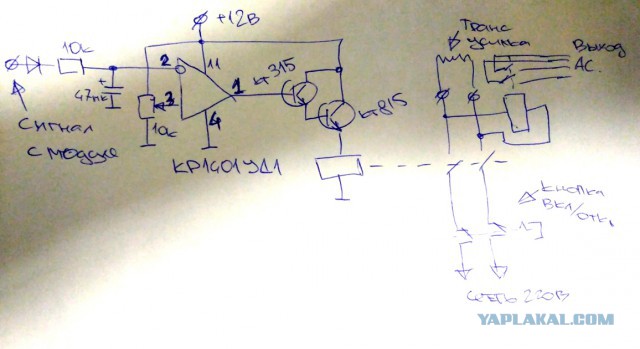 +12В
10к
2
11
1
КТ315
КТ815
47мк
3
10к
4
Сигнал
с модуля
КР1401УД1
Транс
усилка
Выход
АС.
Кнопка
вкл/откл
Сеть 220В
YAPLAKAL.COM